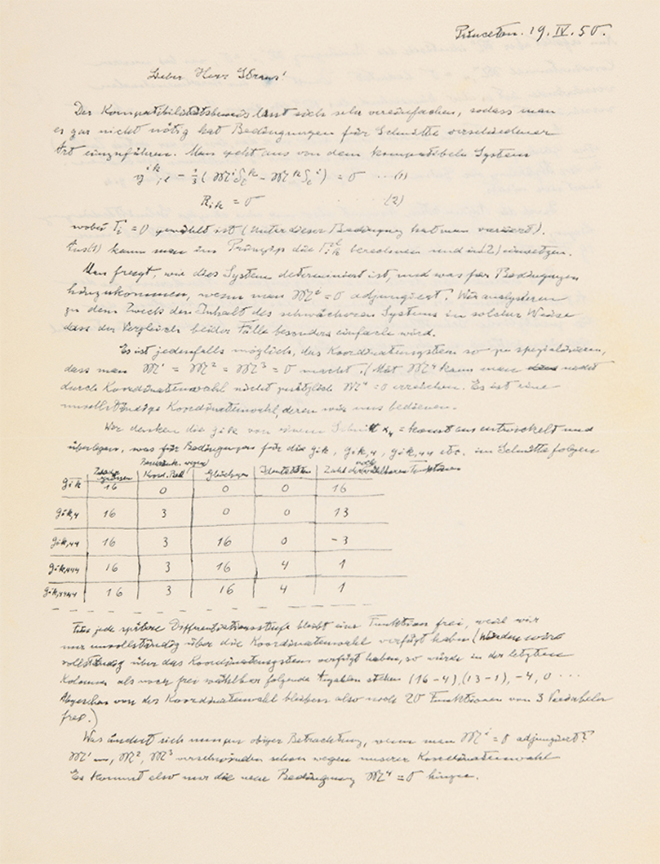 Princeton. 19. IV. 50.
Lieber Herr Straus!
Der Kompatibilitätsbeweis lässt sich sehr vereinfachen, sodass man
es gar nicht nötig hat Bedingungen für Schnitte verschiedener
Art einzuführen. Man geht aus von dem kompatibeln System
(1)
R_ik = 0 (2)
wobei Γ_i = 0 gewählt ist (Unter dieser Bedingung hat man variiert).
Aus (1) kann man im Prinzip die Γ berechnen und in (2) einsetzen.
Man fragt, wie dies System determiniert ist, und was für Bedingungen
hinzukommen, wenn man 𝔐 = 0 adjungiert. Wir analysieren
zu dem Zweck den Inhalt des schwächeren Systems in solcher Weise
dass der Vergleich beider Fälle besonders einfach wird.
Es ist jedenfalls möglich, das Koordinatensystem so zu spezialisieren,
dass man 𝔐¹ = 𝔐² = 𝔐³ = 0 macht. kann man nicht
durch Koordinatenwahl nicht zusätzlich 𝔐⁴ = 0 erreichen. Es ist eine
unvollständige Koordinatenwahl, deren wir uns bedienen.
Wir denken die gik von einem Schnitt x₄ = konst aus entwickelt und
überlegen, was für Bedingungen für die gik, gik,4, gik,44 etc. im Schnitte folgen
Koord. Gleichgen Identitäten Zahl
gik 16 0 0 0 16
gik,4 16 3 0 0 13
gik,44 16 3 16 0 -3
gik,444 16 3 16 4 1
gik,4444 16 3 16 4 1
Für jede spätere Differentiationsstufe bleibt eine Funktion frei, weil wir
nur unvollständig über die Koordinatenwahl verfügt haben (würden wir
vollständig über das Koordinatensystem verfügt haben, so würde in der letzten
Kolumne als noch frei wählbar folgende Zahlen stehen (16-4), (13-1), -4, 0 ...
Abgesehen von der Koordinatenwahl bleiben also noch 20 Funktionen von 3 Variabeln
frei.)
Was ändert sich nun an obiger Betrachtung, wenn man 𝔐 = 0 adjungiert?
𝔐¹, 𝔐², 𝔐³ verschwinden schon wegen unserer Koordinatenwahl
Es kommt also nur die neue Bedingung 𝔐⁴ = 0 hinzu.